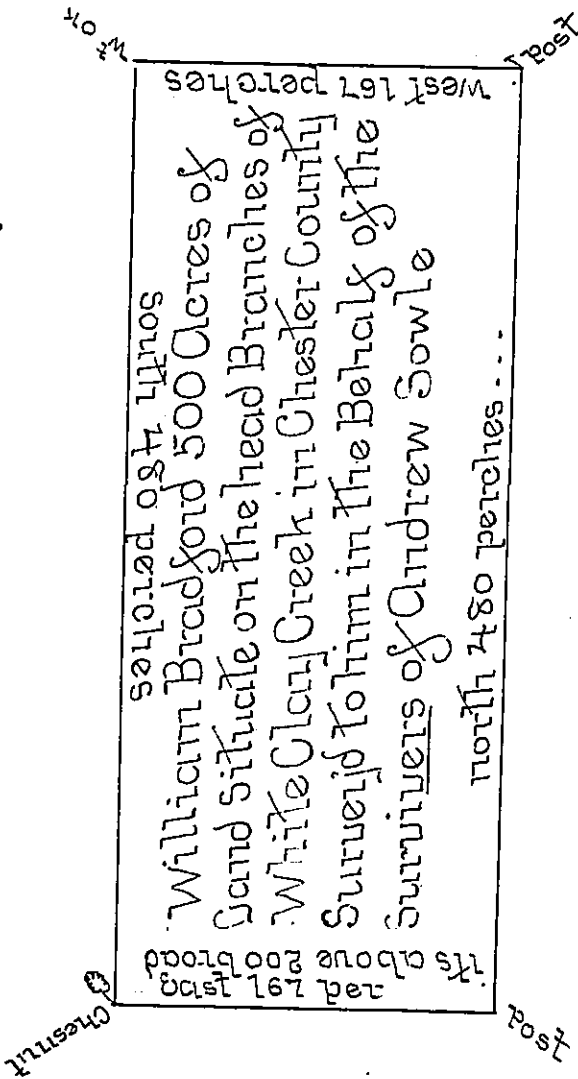 wt ok
Post
West 167 perches
South 480 perches
William Bradford 500 Acres of
Land Situate on the head Branches of
White Clay Creek in Chester County
Survey'd to him in the Behalf of the
Survivers of Andrew Sowle
north 480 perches....
East 167 per
its above 200 broad
Chesnut
Post